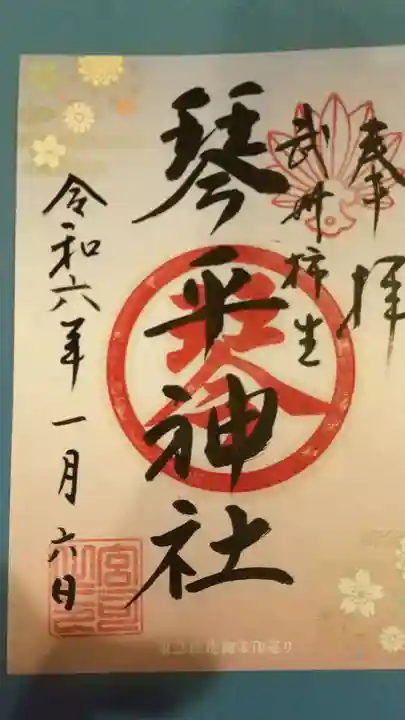 奉拝
武州柿生
琴平神社
令和六年一月六日
金